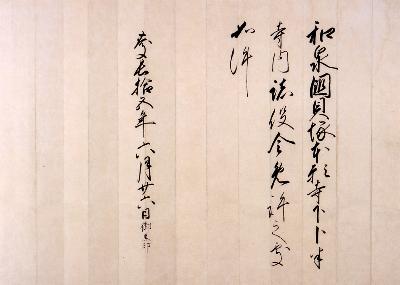 和泉國貝塚本願寺下卜半
寺内諸役令免許之
如件
慶長拾五年六月廿六日
御印